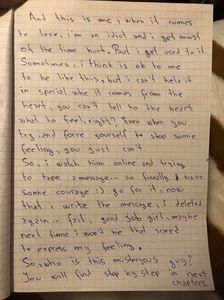 And this is me, when it comes
to love, i'm an idiot and i get most
of the time hurt. But i get used to it.
Sometimes, i think is ok to me
to be like this, but i can't help it
in special whe it comes from the
heart, you can't tell to the heart
what to feel, right? Even when you
try, and force yourself to stop some
feeling, you just can't.
So, i watch him online and trying
to tape a message... so finally i have
some courage :) go for it, now
that i write the message, i deleted
again... fail, good job girl, maybe
next time i won't be that scared
to express my feeling.
So, who is this misteryous guy?
You will find step by step in next
chapters.